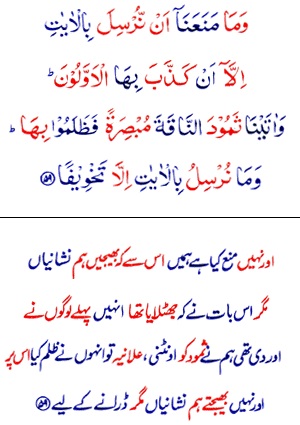 وَمَا مَنَعَنَاۤ اَنۡ نُّرۡسِلَ بِالۡاٰيٰتِ
اِلَّاۤ اَنۡ كَذَّبَ بِهَا الۡاَوَّلُوۡنَ‌ؕ
وَاٰتَيۡنَا ثَمُوۡدَ النَّاقَةَ مُبۡصِرَةً فَظَلَمُوۡا بِهَا‌ؕ
وَمَا نُرۡسِلُ بِالۡاٰيٰتِ اِلَّا تَخۡوِيۡفًا ﴿۵۹﴾
اور نہیں منع کیا ہے ہمیں اس سے کہ بھیجیں ہم نشانیاں
مگر اس بات نے کہ جھٹلایا تھا انہیں پہلے لوگوں نے
اور دی تھی ہم نے ثمود کو اونٹنی، علانیہ تو انہوں نے ظلم کیا اس پر
اور نہیں بھیجتے ہم نشانیاں مگر ڈرانے کے لیے ﴿۵۹﴾